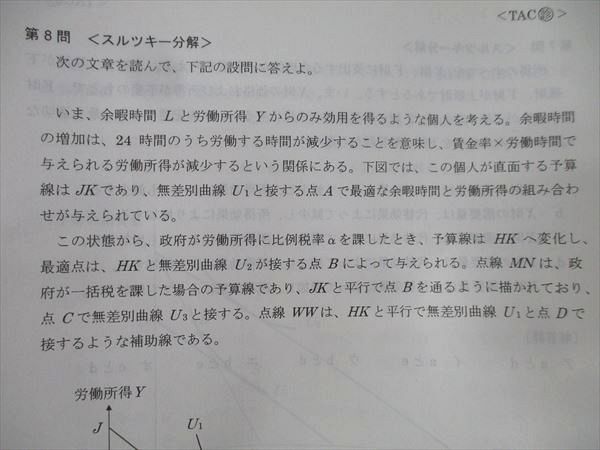 ＜TAC㊢＞
第８問　＜スルツキー分解＞
次の文章を読んで、下記の設問に答えよ。
いま、余暇時間 L と労働所得 Y からのみ効用を得るような個人を考える。余暇時間
の増加は、24 時間のうち労働する時間が減少することを意味し、賃金率×労働時間で
与えられる労働所得が減少するという関係にある。下図では、この個人が直面する予算
線は JK であり、無差別曲線 U₁と接する点 A で最適な余暇時間と労働所得の組み合わ
せが与えられている。
この状態から、政府が労働所得に比例税率αを課したとき、予算線は HK へ変化し、
最適点は、HK と無差別曲線 U₂が接する点 B によって与えられる。点線 MN は、政
府が一括税を課した場合の予算線であり、JKと平行で点 B を通るように描かれており、
点 C で無差別曲線 U₃と接する。点線 WWは、HKと平行で無差別曲線 U₁と点 D で
接するような補助線である。
労働所得Y
J
U₁